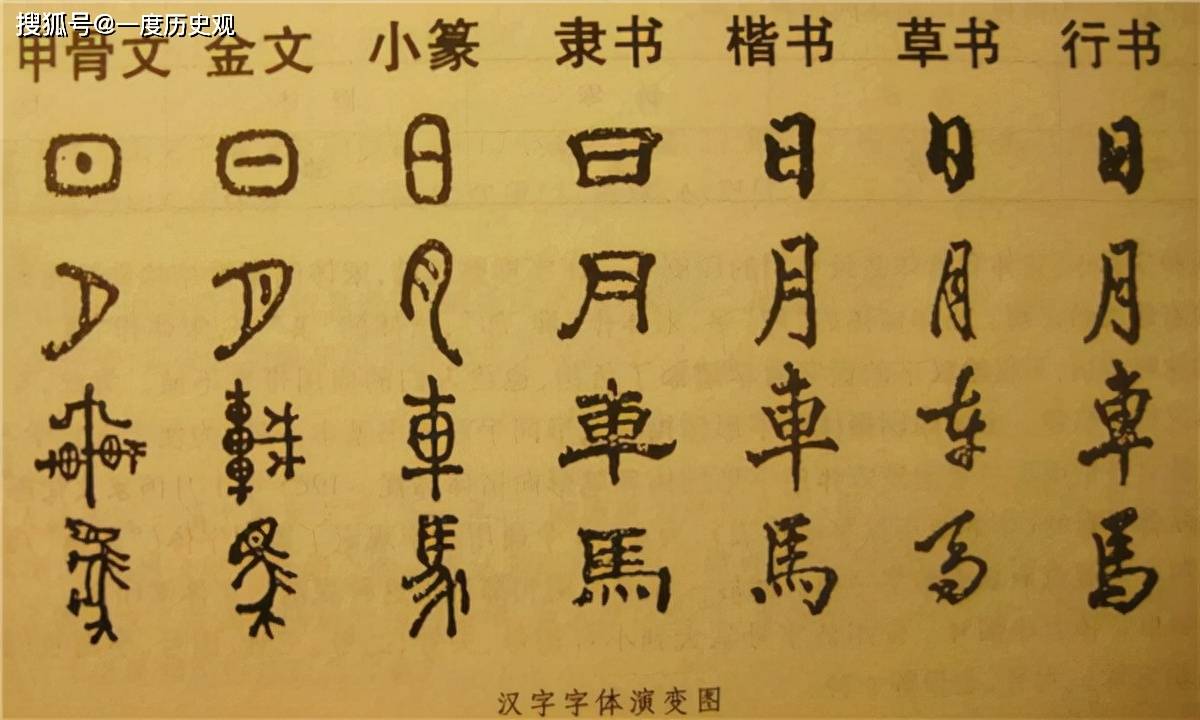 搜狐号@一度历史观
甲骨文 金文 小篆 隶书 楷书 草书 行书
日 日 日 日 日 日 日
月 月 月 月 月 月 月
車 車 車 車 車 車 車
馬 馬 馬 馬 馬 馬 馬
汉字字体演变图